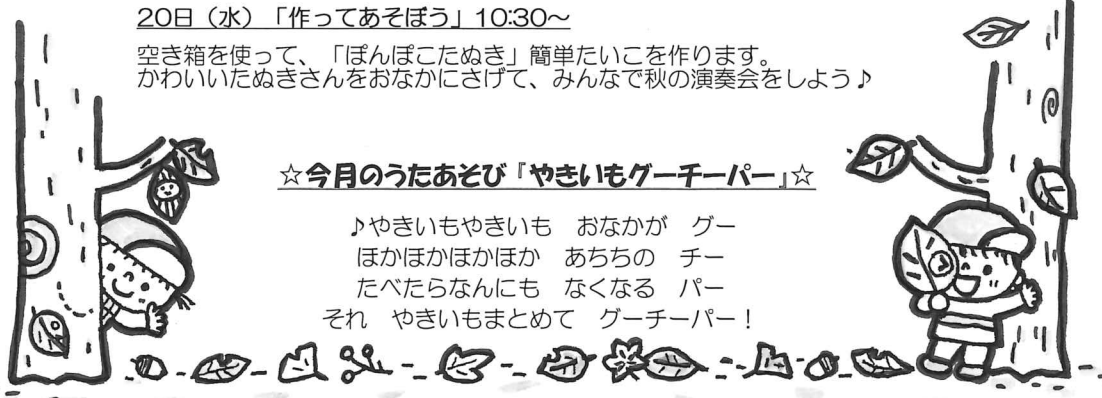 20日（水）「作ってあそぼう」10:30～
空き箱を使って、「ぽんぽこたぬき」簡単たいこを作ります。
かわいいたぬきさんをおなかにさげて、みんなで秋の演奏会をしよう♪
☆今月のうたあそび『やきいもグーチーパー』☆
♪やきいもやきいも　おなかが　グー
ほかほかほかほか　あちちの　チー
たべたらなんにも　なくなる　パー
それ　やきいもまとめて　グーチーパー！